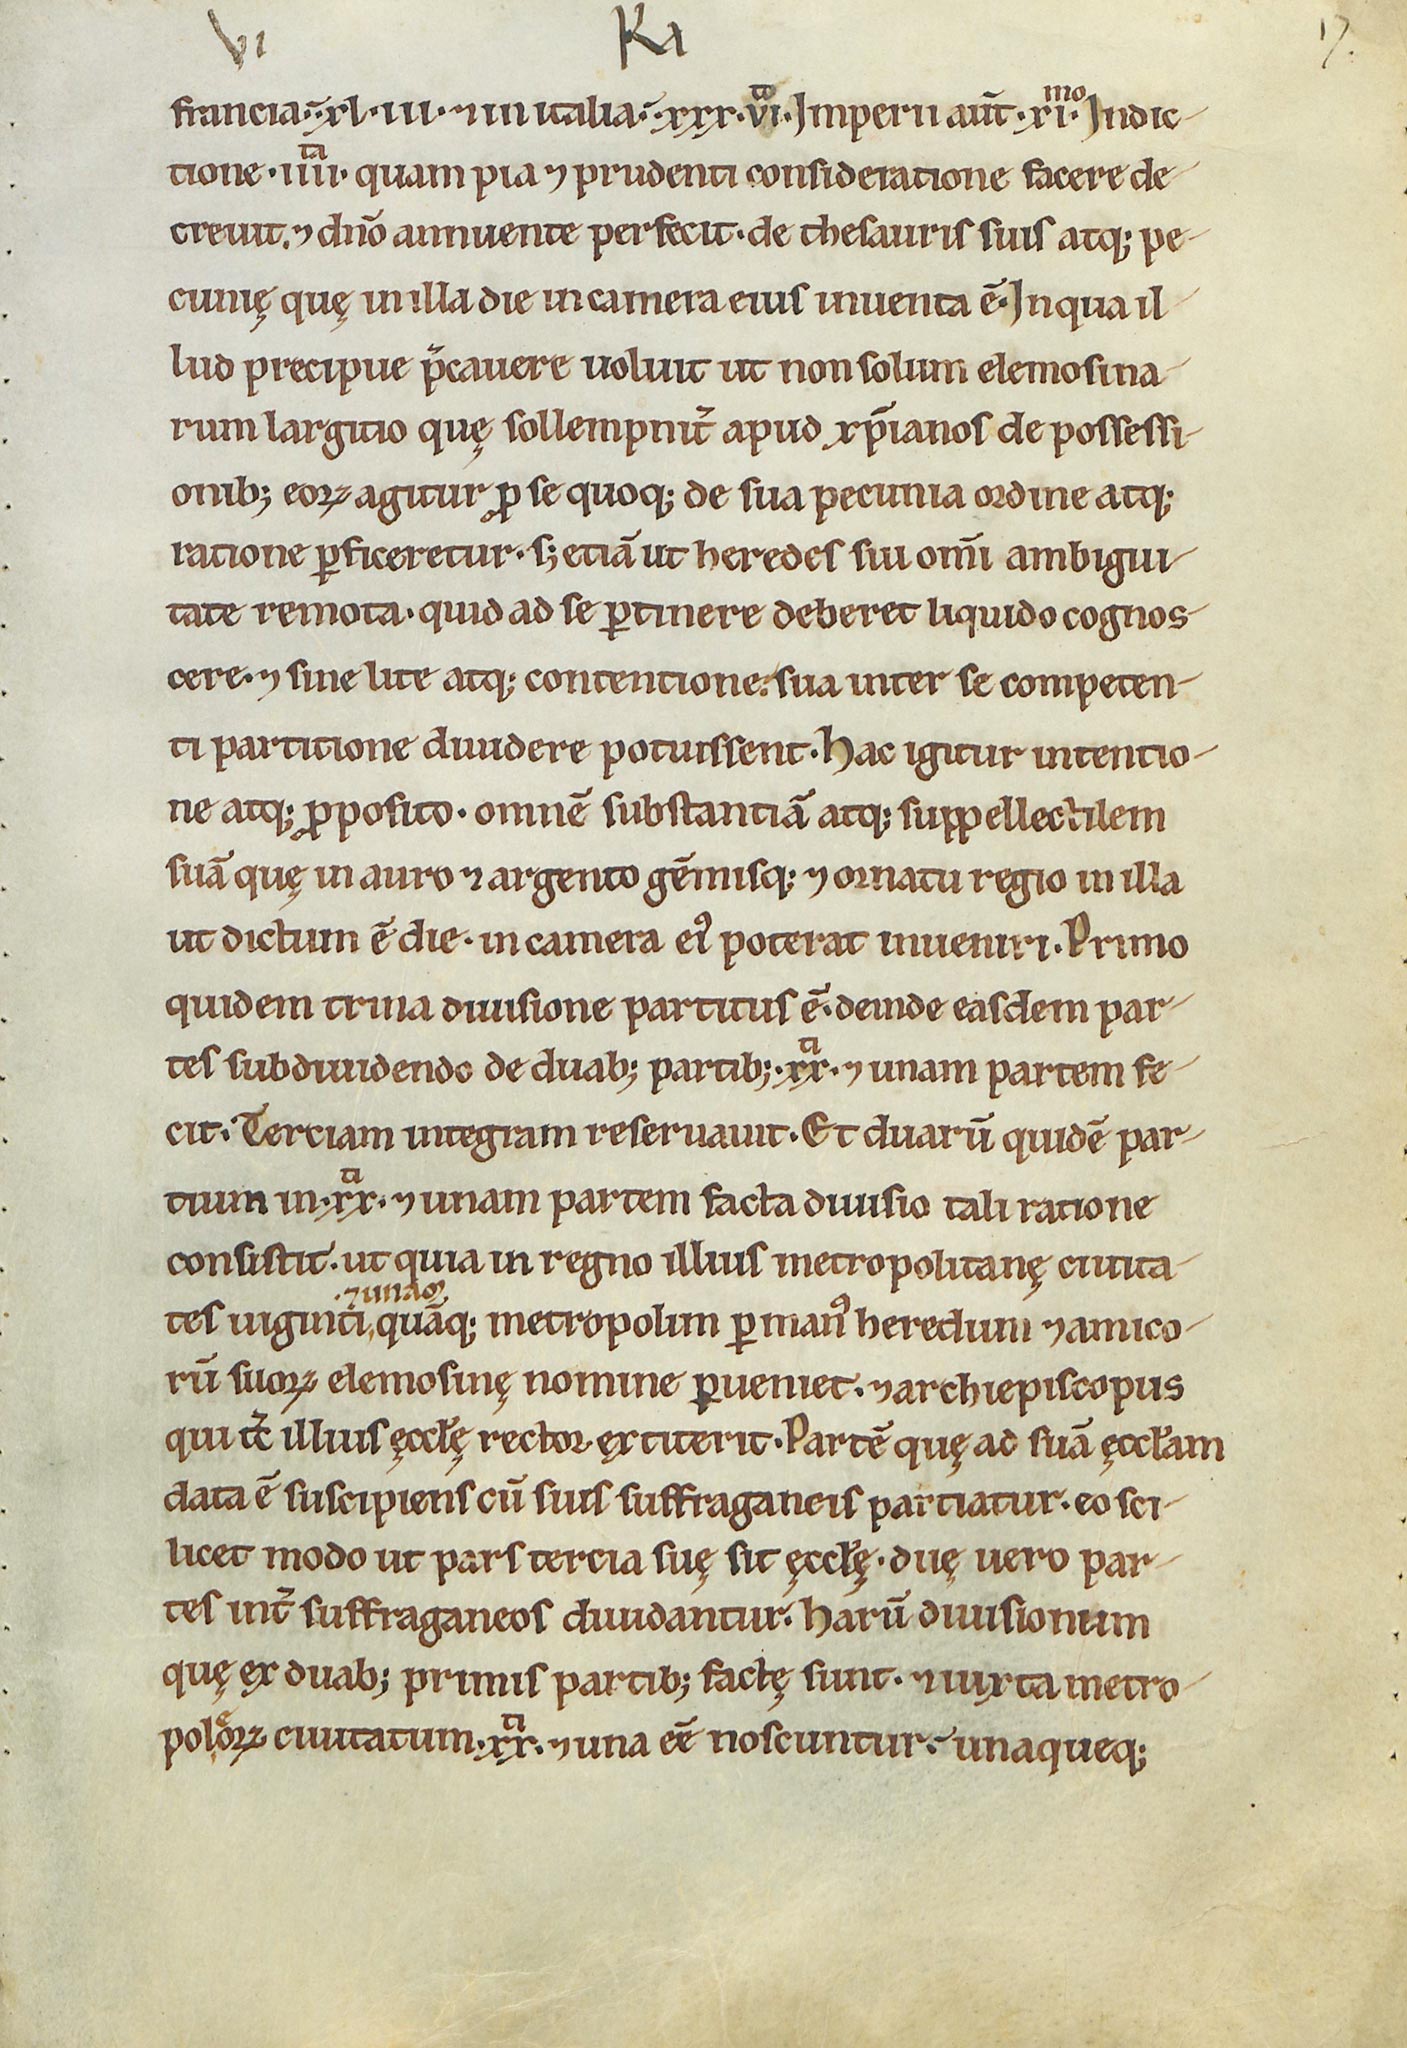 VI KA 17.
francia·̄ xl·iii· ⁊ in italia·̄ xxx·vi·ͭͣ Imperii aut̄·xi·ᵐᵒ Indic-
tione·iiii·ͭͣ quam pia ⁊ prudenti consideratione facere de-
creuit. ⁊ dn̄o annuente perfecit· de thesauris suis atq; pe-
cunię quę in illa die in camera eius inuenta ē· In qua il-
lud precipue p̄cauere uoluit ut non solum elemosina-
rum largitio quę sollempnit̄ apud xp̄ianos de possessi-
onib; eoꝝ agitur ꝓ se quoq; de sua pecunia ordine atq;
ratione ꝑficeretur· s; etiā ut heredes sui om̄i ambigui-
tate remota· quid ad se ꝑtinere deberet liquido cognos-
cere· ⁊ sine lite atq; contentione· sua inter se competen-
ti partitione diuidere potuissent· Hac igitur intentio-
ne atq; ꝓposito· omnē substantiā atq; suppellectilem
suā quę in auro ⁊ argento gēmisq; ⁊ ornatu regio in illa
ut dictum ē die· in camera eiꝰ poterat inueniri· Primo
quidem trina diuisione partitus ē· deinde easdem par-
tes subdiuidendo de duab; partib;·xx·ͭͥ ⁊ unam partem fe-
cit· Terciam integram reseruauit· Et duarū quidē par-
tium in·xx·ͭͥ ⁊ unam partem facta diuisio tali ratione
consistit· ut quia in regno illius metropolitanę ciuita-
·⁊ unaqꝫ
tes uiginti, quāq; metropolim ꝑ manꝰ heredum ⁊ amico-
rū suoꝝ elemosinę nomine ꝑueniet· ⁊ archiepiscopus
qui tc̄ illius ęccłę rector extiterit· Partē quę ad suā ęccłam
data ē suscipiens cū suis suffraganeis partiatur· eo sci-
licet modo ut pars tercia suę sit ęccłę· duę uero par-
tes int̄ suffraganeos diuidantur· Harū diuisionum
quę ex duab; primis partib; factę sunt· ⁊ iuxta metro-
poleoꝝ ciuitatum·xx·ͭͥ ⁊ una eē noscuntur· unaqueq;